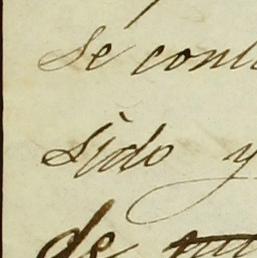 se cont
sido y
de